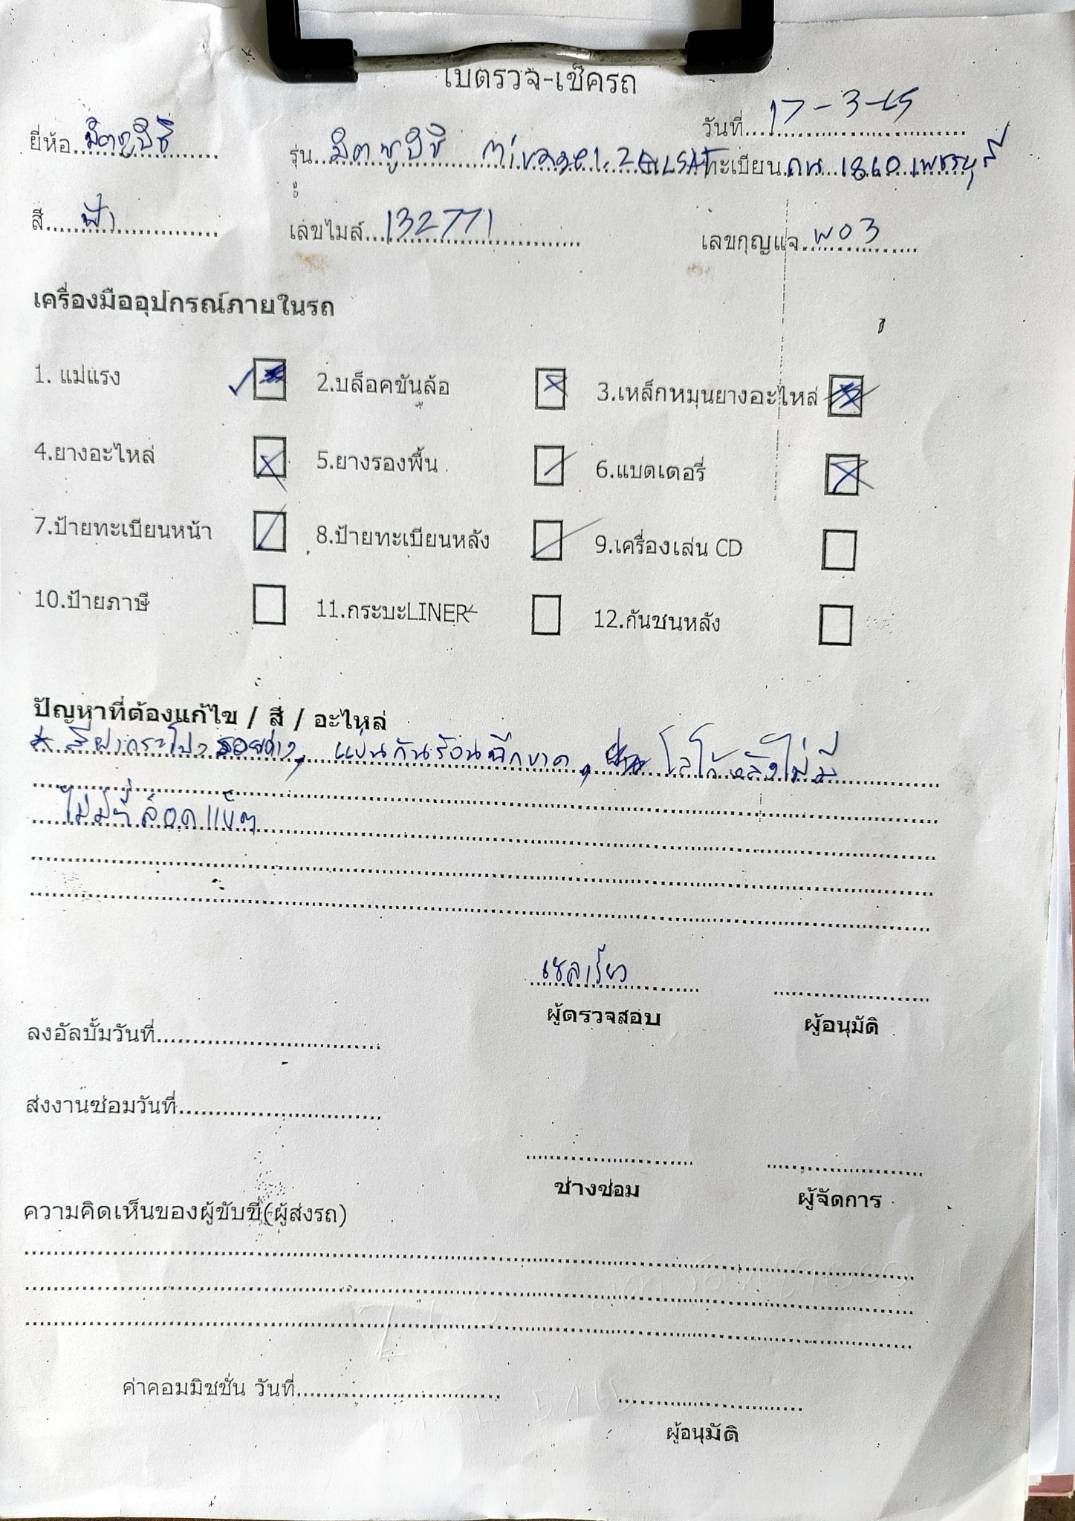 ใบตรวจ-เช็ครถ
วันที่ 17-3-65
ยี่ห้อ มิตซูบิชิ รุ่น มิตซูบิชิ mirage 1.2 GLS AT ทะเบียน กษ 1860 เพชรบุรี
สี ฟ้า เลขไมล์ 132771 เลขกุญแจ W03
เครื่องมืออุปกรณ์ภายในรถ
1. แม่แรง 2.บล็อคขันล้อ 3.เหล็กหมุนยางอะไหล่
4.ยางอะไหล่ 5.ยางรองพื้น 6.แบตเตอรี่
7.ป้ายทะเบียนหน้า 8.ป้ายทะเบียนหลัง 9.เครื่องเล่น CD
10.ป้ายภาษี 11.กระบะLINER 12.กันชนหลัง
ปัญหาที่ต้องแก้ไข / สี / อะไหล่
* สีฝากระโปรงรอยด่าง, แผ่นกันร้อนฉีกขาด, โลโก้หลังไม่มี
ไม่มีที่ล็อดแบ็ต
ผู้ตรวจสอบ ผู้อนุมัติ
ลงอัลบั้มวันที่
ส่งงานซ่อมวันที่
ช่างซ่อม ผู้จัดการ
ความคิดเห็นของผู้ขับขี่(ผู้ส่งรถ)
ค่าคอมมิชชั่น วันที่
ผู้อนุมัติ